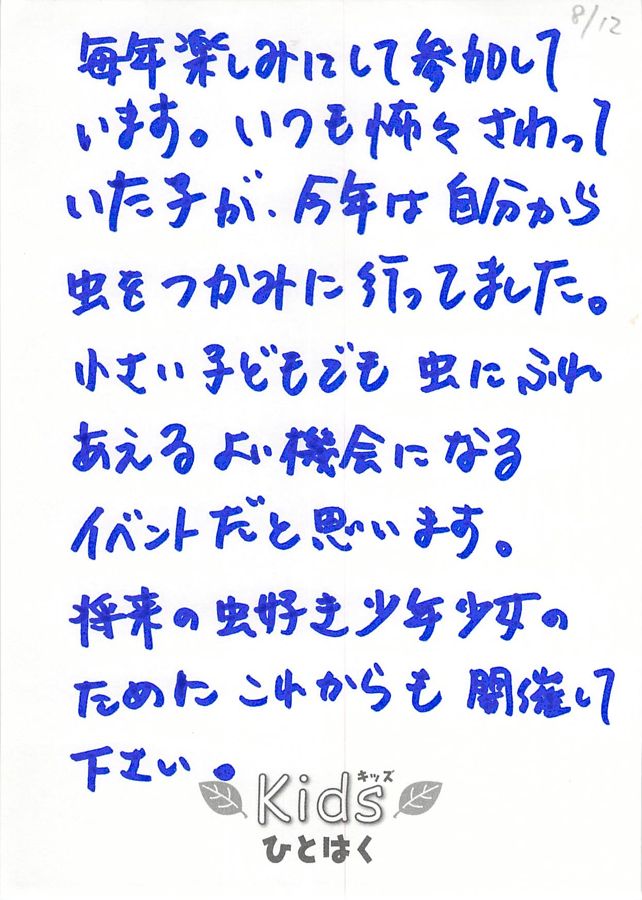 8/12
毎年楽しみにして参加して
います。いつも怖々さわって
いた子が、今年は自分から
虫をつかみに行ってました。
小さい子どもでも虫にふれ
あえるよい機会になる
イベントだと思います。
将来の虫好き少年少女の
ために これからも 開催して
下さい。
キッズ
Kids
ひとはく